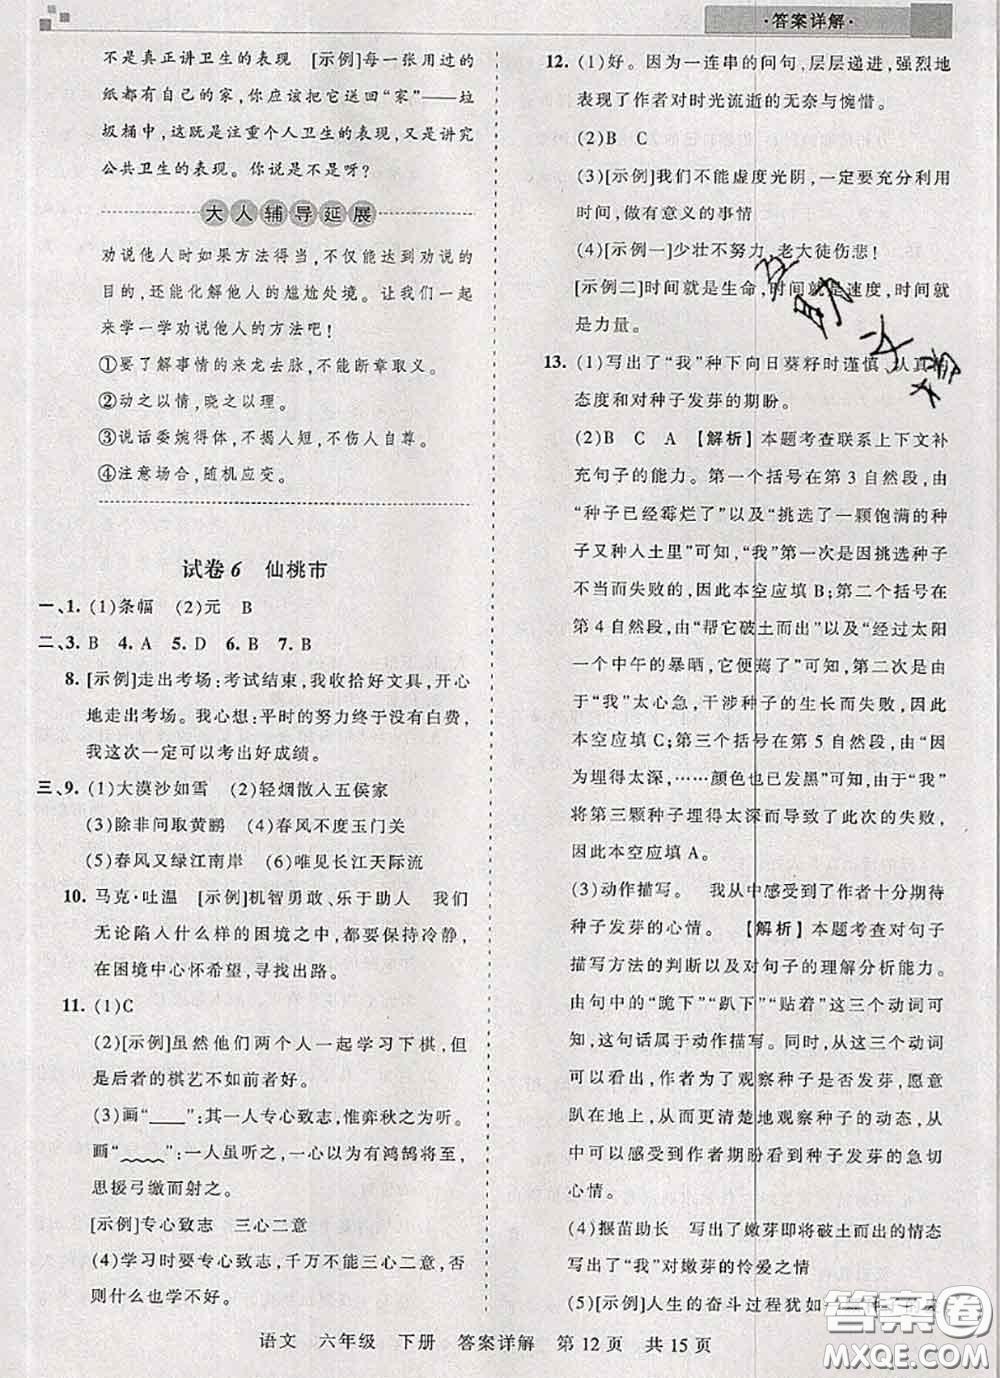 ·答案详解·
不是真正讲卫生的表现　[示例]每一张用过的
纸都有自己的家,你应该把它送回“家”——垃
圾桶中,这既是注重个人卫生的表现,又是讲究
公共卫生的表现。你说是不是呀?
大人辅导延展
劝说他人时如果方法得当,不仅能达到劝说的
目的,还能化解他人的尴尬处境。让我们一起
来学一学劝说他人的方法吧!
①要了解事情的来龙去脉,不能断章取义。
②动之以情,晓之以理。
③说话委婉得体,不揭人短,不伤人自尊。
④注意场合,随机应变。
试卷6　仙桃市
一、1. (1)条幅　(2)元　B
二、3. B　4. A　5. D　6. B　7. B
8. [示例]走出考场:考试结束,我收拾好文具,开心
地走出考场。我心想:平时的努力终于没有白费,
我这次一定可以考出好成绩。
三、9. (1)大漠沙如雪　(2)轻烟散入五侯家
(3)除非问取黄鹂　(4)春风不度玉门关
(5)春风又绿江南岸　(6)唯见长江天际流
10. 马克·吐温　[示例]机智勇敢、乐于助人　我们
无论陷入什么样的困境之中,都要保持冷静,
在困境中心怀希望,寻找出路。
11. (1)C
(2)[示例]虽然他们两个人一起学习下棋,但
是后者的棋艺不如前者好。
(3)画“____”:其一人专心致志,惟弈秋之为听。
画“﹏﹏”:一人虽听之,一心以为有鸿鹄将至,
思援弓缴而射之。
[示例]专心致志　三心二意
(4)学习时要专心致志,千万不能三心二意,否
则什么也学不好。
12. (1)好。因为一连串的问句,层层递进,强烈地
表现了作者对时光流逝的无奈与惋惜。
(2)B　C
(3)[示例]我们不能虚度光阴,一定要充分利用
时间,做有意义的事情
(4)[示例一]少壮不努力,老大徒伤悲!
[示例二]时间就是生命,时间就是速度,时间就
是力量。
13. (1)写出了“我”种下向日葵籽时谨慎、认真的
态度和对种子发芽的期盼。
(2)B　C　A　【解析】本题考查联系上下文补
充句子的能力。第一个括号在第3自然段,由
由“种子已经霉烂了”以及“挑选了一颗饱满的种
子又种入土里”可知,“我”第一次是因挑选种子
不当而失败的,因此本空应填B;第二个括号在
第4自然段,由“帮它破土而出”以及“经过太阳
一个中午的暴晒,它便蔫了”可知,第二次是由
于“我”太心急,干涉种子的生长而失败,因此
本空应填C;第三个括号在第5自然段,由“因
为埋得太深,……颜色也已发黑”可知,“我”
将第三颗种子埋得太深而导致了此次的失败,
因此本空应填A。
(3)动作描写。　我从中感受到了作者十分期待
种子发芽的心情。　【解析】本题考查对句子
描写方法的判断以及对句子的理解分析能力。
由句中的“跪下”“趴下”“贴着”这三个动词可
知,这句话属于动作描写。同时,从这三个动词
可以看出,作者为了观察种子是否发芽,愿意
趴在地上,从而更清楚地观察种子的动态,从
中可以感受到作者期盼种子发芽的急切
心情。
(4)揠苗助长　写出了嫩芽即将破土而出的情态
写出了“我”对嫩芽的怜爱之情
(5)[示例]人生的奋斗过程犹如
语文　六年级　下册　答案详解　第12页　共15页
答案圈
MXQE.COM